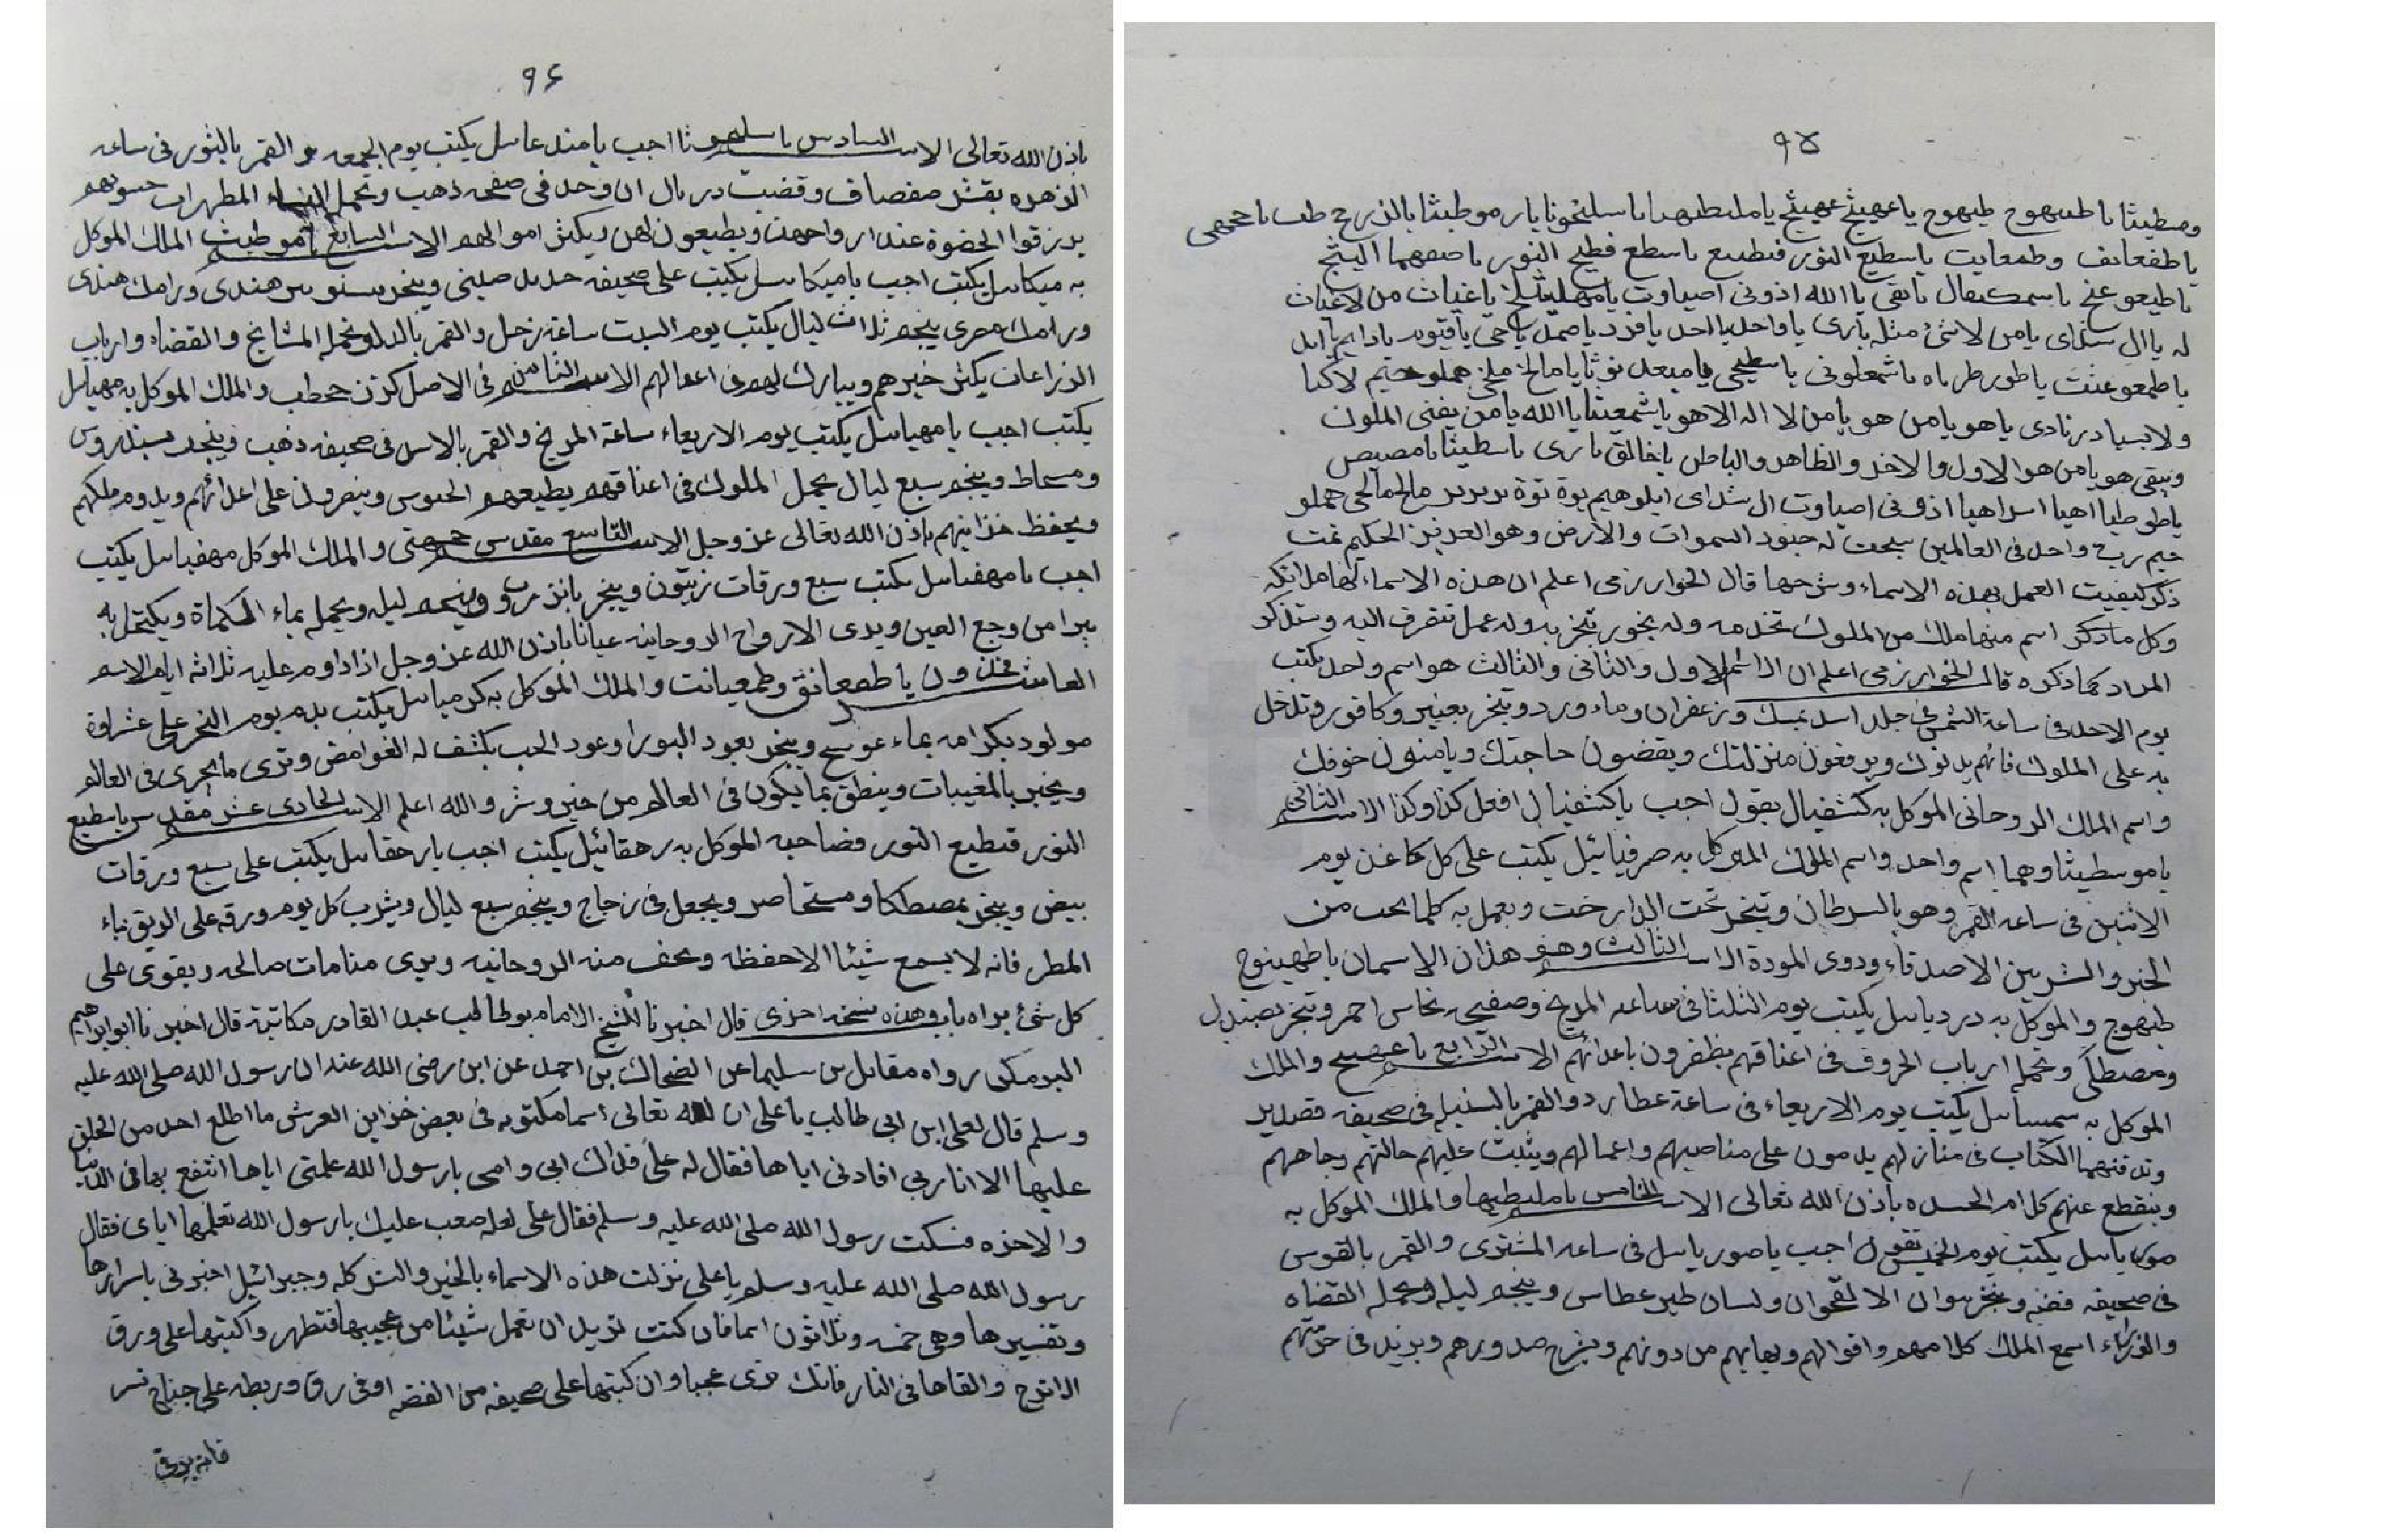 ٩٥
ومطيثا يا طيهوج طيهوج يا عهيثج عهيثج يا مليطهيا يا سليخوثا يا رموطيثا
يا طفعانف وطمعايت ياسطيع النور فتطيع ياسطع فطيح النور
يا الله اذونى اصباوت يا غياث من لاغياث
له يا ال شداى يا من لا شئ مثله يا واحد يا احد يا فرد يا صمد يا حي يا قيوم يا دايم
يا طمعو عنثت يا طور طرياه يا شمعلونى
ولا يسيا در نادى يا هو يا من هو يا من لا اله الا هو يا شمعيثا يا الله يا من يفنى الملون
ويبقى هو يا من هو الاول والاخر والظاهر والباطن يا خالق يا برى ياسطيثا يا مصيص
ياطوطيا اهيا اسراهيا اذونى اصباوت ال شداى ايلوهيم
حيم رب واحد فى العالمين سبحت له جنود السموات والارض وهو العزيز الحكيم تمت
ذكر كيفيت العمل بهذه الاسماء وشرحها قال الخوارزمى اعلم ان هذه الاسماء لها ملائكه
وكل ما ذكر اسم منها ملك من الملوك تخدمه وله بخور تبخر به وله عمل تتصرف اليه وستذكر
المراد كما ذكره قال الخوارزمى اعلم ان الاسم الاول والثانى والثالث هو اسم واحد يكتب
يوم الاحد فى ساعة الشمس فى جلد اسد بمسك وزعفران وماء ورد وتبخر بعنبر وكافور وتدخل
به على الملوك فانهم يدنوك ويرفعون منزلتك ويقضون حاجتك ويامنون خوفك
واسم الملك الروحانى الموكل به كشفيال يقول اجب يا كشفيال افعل كذا وكذا الاسم الثانى
يا موسطيثا وهما اسم واحد واسم الملك الموكل به صرفيائيل يكتب على كل كاغد يوم
الاثنين فى ساعه القمر وهو بالسرطان وتبخر تحت الدارخت ويعمل به كلما يحب من
الخير والشر بين الاصدقاء وذوى المودة الاسم الثالث وهو هذان الاسمان يا طهينوج
طيهوج والموكل به دردياىىل يكتب يوم الثلثا فى ساعه المريخ وصفيحه نحاس احمر وتبخر بصندل
ومصطكى وتحمله ارباب الحروف فى اعناقهم يظفرون باعدائهم الاسم الرابع يا عهيج والملك
الموكل به سمساىىل يكتب يوم الاربعاء فى ساعة عطارد والقمر بالسنبله فى صحيفه قصدير
وتدفنهما الكتاب فى منازلهم يدمون على مناصبهم واعمالهم ويثبت عليهم حالتهم وجاههم
وينقطع عنهم كل امر الحسده باذن الله تعالى الاسم الخامس يا مليطيها والملك الموكل به
صوريايىل يكتب يوم الخميس تقول اجب يا صوريايىل فى ساعه المشترى والقمر بالقوس
فى صحيفه فضه وتبخر بوان الاقحوان ولسان طير عطاس وينجم ليله وتحمله القضاه
والوزراء اسمع الملك كلامهم واقوالهم ويهابهم من دونهم ويشرح صدورهم ويزيد فى حرمتهم
٩٦
باذن الله تعالى الاسم السادس يا سليموثا اجب يا مندعايىل يكتب يوم الجمعه والقمر بالثور فى ساعه
الزهره بقشر صفصاف وقضيب دربال ان وجد فى صفحه ذهب وتحمل النساء المطهرات
يرزقوا الحضوة عند ازواجهن ويطيعون لهن ويكثر اموالهم الاسم السابع يا موطيث الملك الموكل
به ميكايىل يكتب اجب يا ميكايىل يكتب على صحيفه حديد صينى ويبخر بسندروس هندى ورامك هندى
ورامك مصرى ينجم ثلاث ليال يكتب يوم السبت ساعة زحل والقمر بالدلو تحمله المشايخ والقضاه وارباب
الزراعات يكثر خيرهم ويبارك لهم فى اعمالهم الاسم الثامن وفى الاصل كرتن ححطب والملك الموكل به مهيايىل
يكتب اجب يا مهيايىل يكتب يوم الاربعاء ساعة المريخ والقمر بالاسد فى صحيفه ذهب ويبخر بسندروس
ومسحاط وينجم سبع ليال يحمل الملوك فى اعناقهم يطيعهم الجيوش وينصرون على اعدائهم ويدوم ملكهم
ويحفظ خزاينهم باذن الله تعالى عز وجل الاسم التاسع مقدس والملك الموكل مهفيايىل يكتب
اجب يا مهفيايىل يكتب سبع ورقات زيتون ويبخر بانزروت وينجم ليله ويحمله بماء الكماة ويكتحل به
يبرا من وجع العين ويرى الارواح الروحانيه عيانا باذن الله عز وجل اذا داوم عليه ثلاثه ايام الاسم
العاشر يا طمعانق وطمعيانت والملك الموكل به كرميايىل يكتب بدم يوم النحر على عشراوة
مولود بكر امه بماء عوسج ويبخر بعود البورا وعود الحب يكشف له الغوامض وترى ما يجرى فى العالم
ويخبر بالمغيبات وينطق بما يكون فى العالم من خير وشر والله اعلم الاسم الحادى عشر مقدس ياسطيع
النور قطيع النور فصاحبه الموكل به رحقائيل يكتب اجب يا رحقايىل يكتب على سبع ورقات
بيض ويبخر بمصطكا ومستحاصر ويجعل فى زجاج وينجم سبع ليال ويشرب كل يوم ورقه على الريق بماء
المطر فانه لا يسمع شيئا الا حفظه وىحف منه الروحانيه ويرى منامات صالحه ويقوى على
كل شئ يراه باب وهذه نسخه اخرى قال اخبرنا الشيخ الامام بوطالب عبد القادر مكاتبة قال اخبرنا ابو ابراهيم
البرمكى رواه مقاتل بن سليما عن الضحاك بن احمد عن ابن رضى الله عنه ان رسول الله صلى الله عليه
وسلم قال لعلى ابن ابى طالب يا على ان لله تعالى اسما مكتوبه فى بعض خزاين العرش ما اطلع احد من الخلق
عليها الا انا ربى افادنى اياها فقال له على فداك ابى وامى يا رسول الله علمنى اياها انتفع بها فى الدنيا
والاخره فسكت رسول الله صلى الله عليه وسلم فقال على لعله صعب عليك يا رسول الله تعلمها اياى فقال
رسول الله صلى الله عليه وسلم يا على نزلت هذه الاسماء بالخير والبركه وجبرائيل اخبرنى باسرارها
وتفسيرها وهى خمسه وثلاثون اسما فان كنت تريد ان تعمل شيئا من عجيبها فتطهر واكتبها على ورق
الاترج والقاها فى النار فانك ترى عجبا وان كتبها على صحيفه من الفضه او فى رق وربطه على جناح نسر